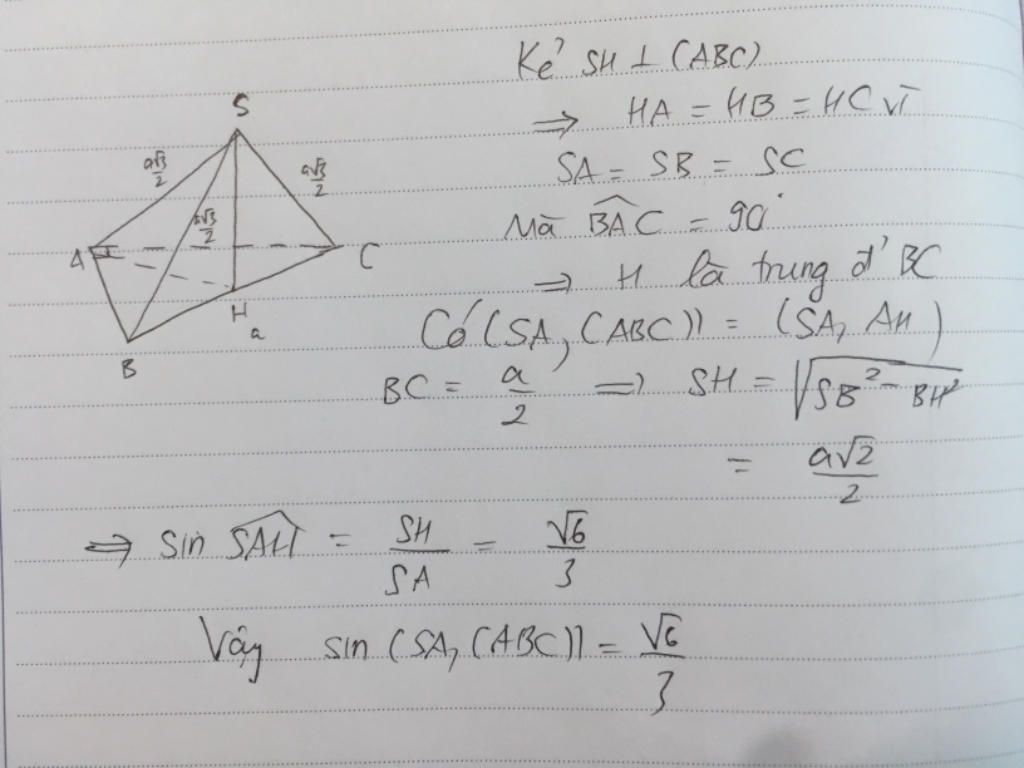 Kẻ SH ⊥ (ABC)
⇒ HA = HB = HC vì
SA = SB = SC
Mà \widehat{BAC} = 90°
⇒ H là trung đ' BC
Có (SA, (ABC)) = (SA, AH)
BC = \frac{a}{2} ⇒ SH = \sqrt{SB^2 - BH^2}
= \frac{a\sqrt{2}}{2}
⇒ sin \widehat{SAH} = \frac{SH}{SA} = \frac{\sqrt{6}}{3}
Vậy sin (SA, (ABC)) = \frac{\sqrt{6}}{3}
S
\frac{a\sqrt{3}}{2} \frac{a\sqrt{3}}{2}
\frac{a\sqrt{3}}{2}
A C
H
a
B